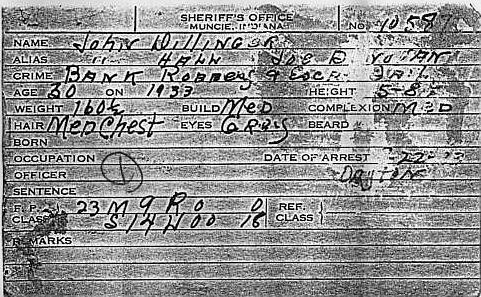 SHERIFF'S OFFICE
MUNCIE, INDIANA No. 10587
NAME John Dillinger
ALIAS " Hall Joe E
CRIME Bank Robbery Jail
AGE 30 ON 1933 HEIGHT 5-8
WEIGHT 160½ BUILD Med COMPLEXION MED
HAIR Med Chest EYES Grey BEARD
BORN
OCCUPATION DATE OF ARREST -22-
OFFICER 1 Dayton
SENTENCE
F. P. 23 M 9 R 0 0 REF.
CLASS S 14 U 00 16 CLASS
REMARKS